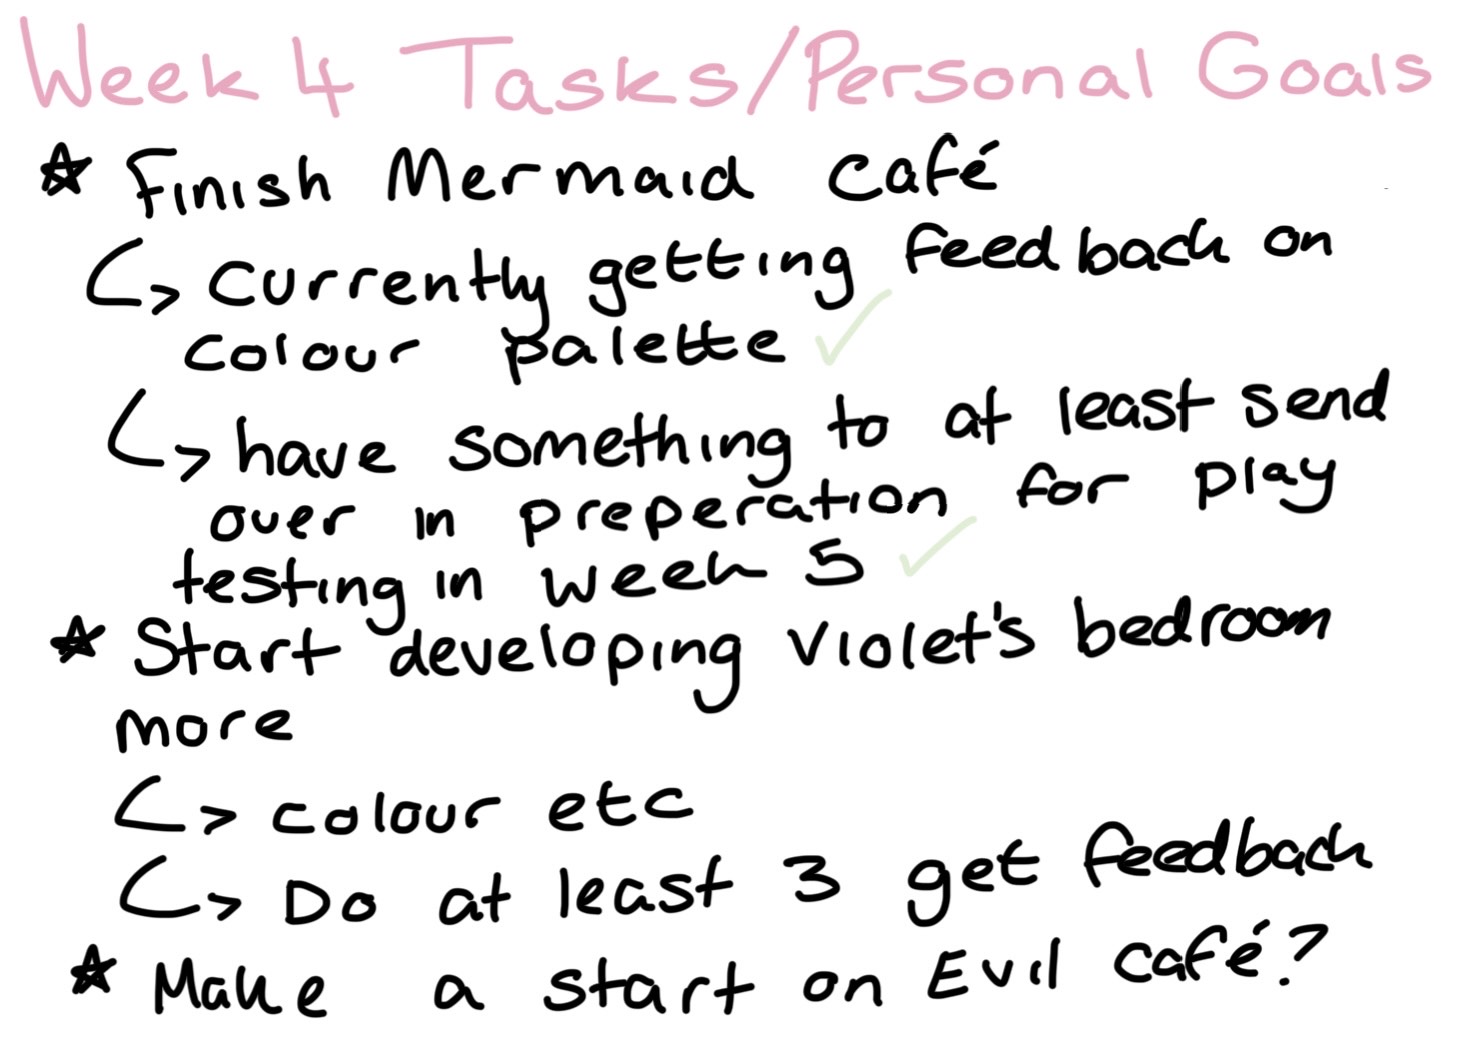 Week 4 Tasks/Personal Goals
☆ Finish Mermaid café
↳ currently getting feedback on
colour palette ✓
↳ have something to at least send
over in preperation for play
testing in week 5 ✓
☆ Start developing Violet's bedroom
more
↳ colour etc
↳ Do at least 3 get feedback
☆ Make a start on Evil café?